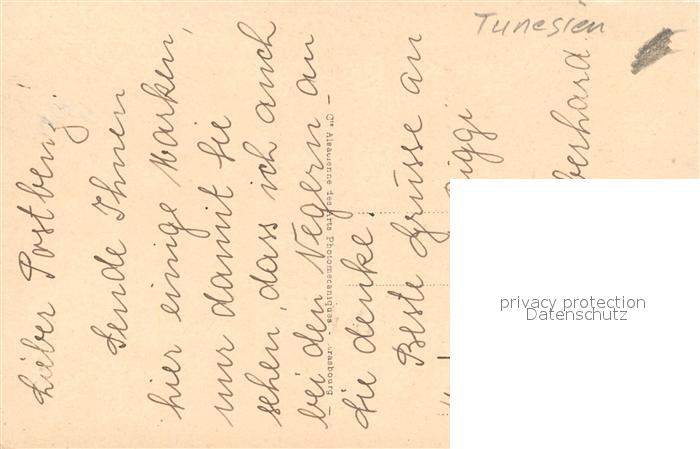 Tunesien
Lieber Postbenz!
Sende Ihnen
hier einige Marken,
nur damit Sie
sehen, dass ich auch
bei den Negern an
Sie denke.
Beste Grüsse an
Cie Alsacienne des Arts Photomécaniques - Strasbourg
privacy protection
Datenschutz